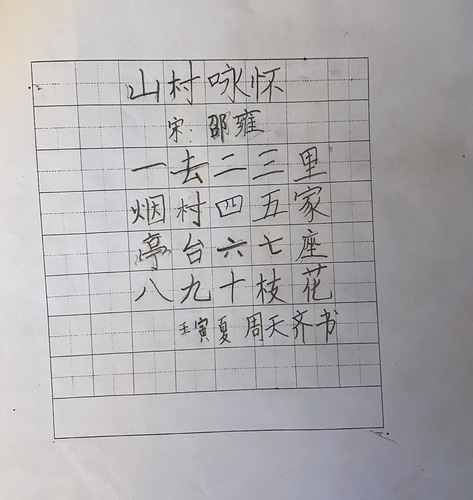 山村咏怀
宋：邵雍
一去二三里
烟村四五家
亭台六七座
八九十枝花
壬寅夏 周天齐书